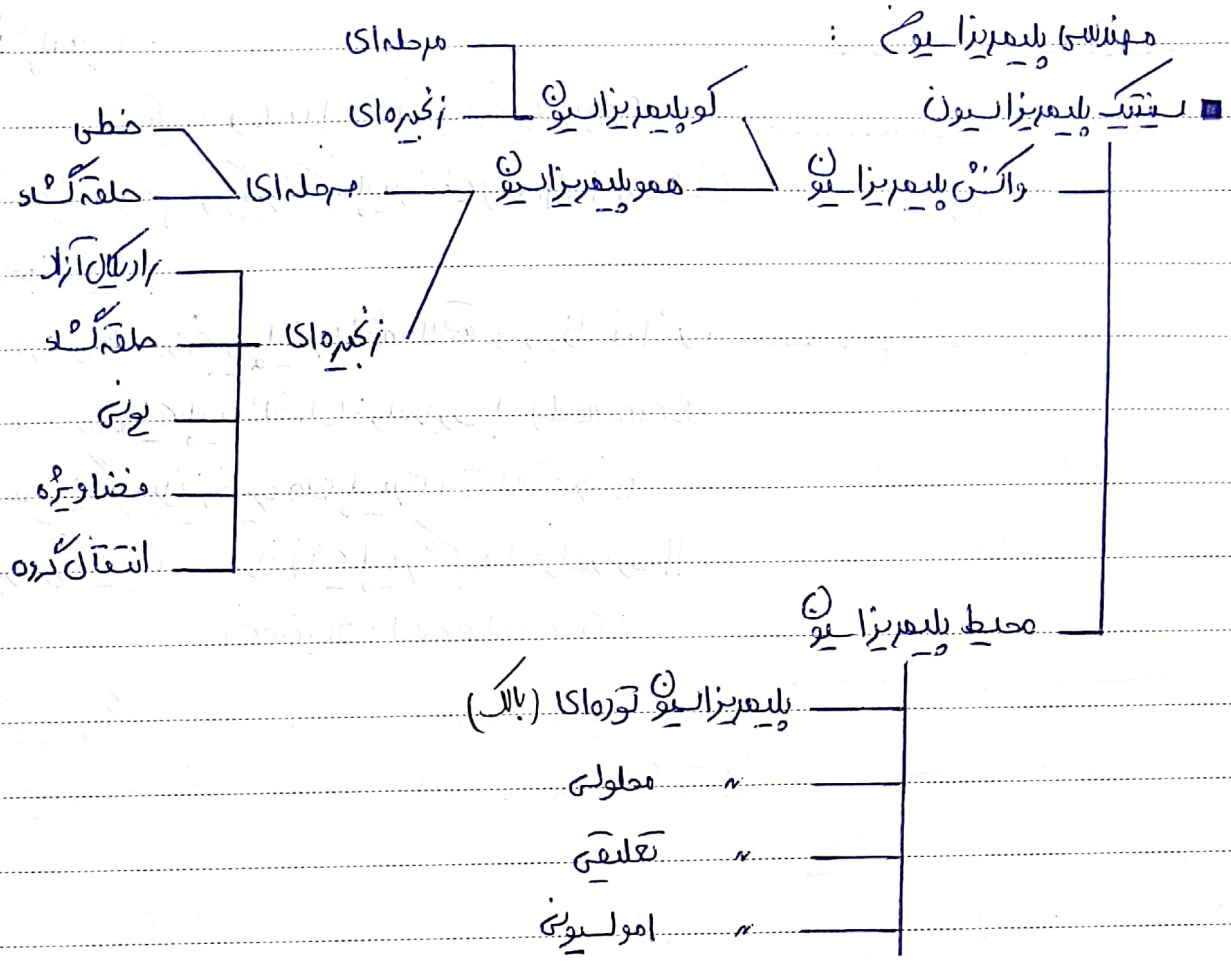 مهندسی پلیمریزاسیون :
■ سینتیک پلیمریزاسیون
واکنش پلیمریزاسیون
کوپلیمریزاسیون
مرحله‌ای
زنجیره‌ای
هموپلیمریزاسیون
مرحله‌ای
خطی
حلقه گشا
زنجیره‌ای
رادیکال آزاد
حلقه گشا
یونی
فضا ویژه
انتقال گروه
محیط پلیمریزاسیون
پلیمریزاسیون توده‌ای (بالک)
〃 محلولی
〃 تعلیقی
〃 امولسیونی